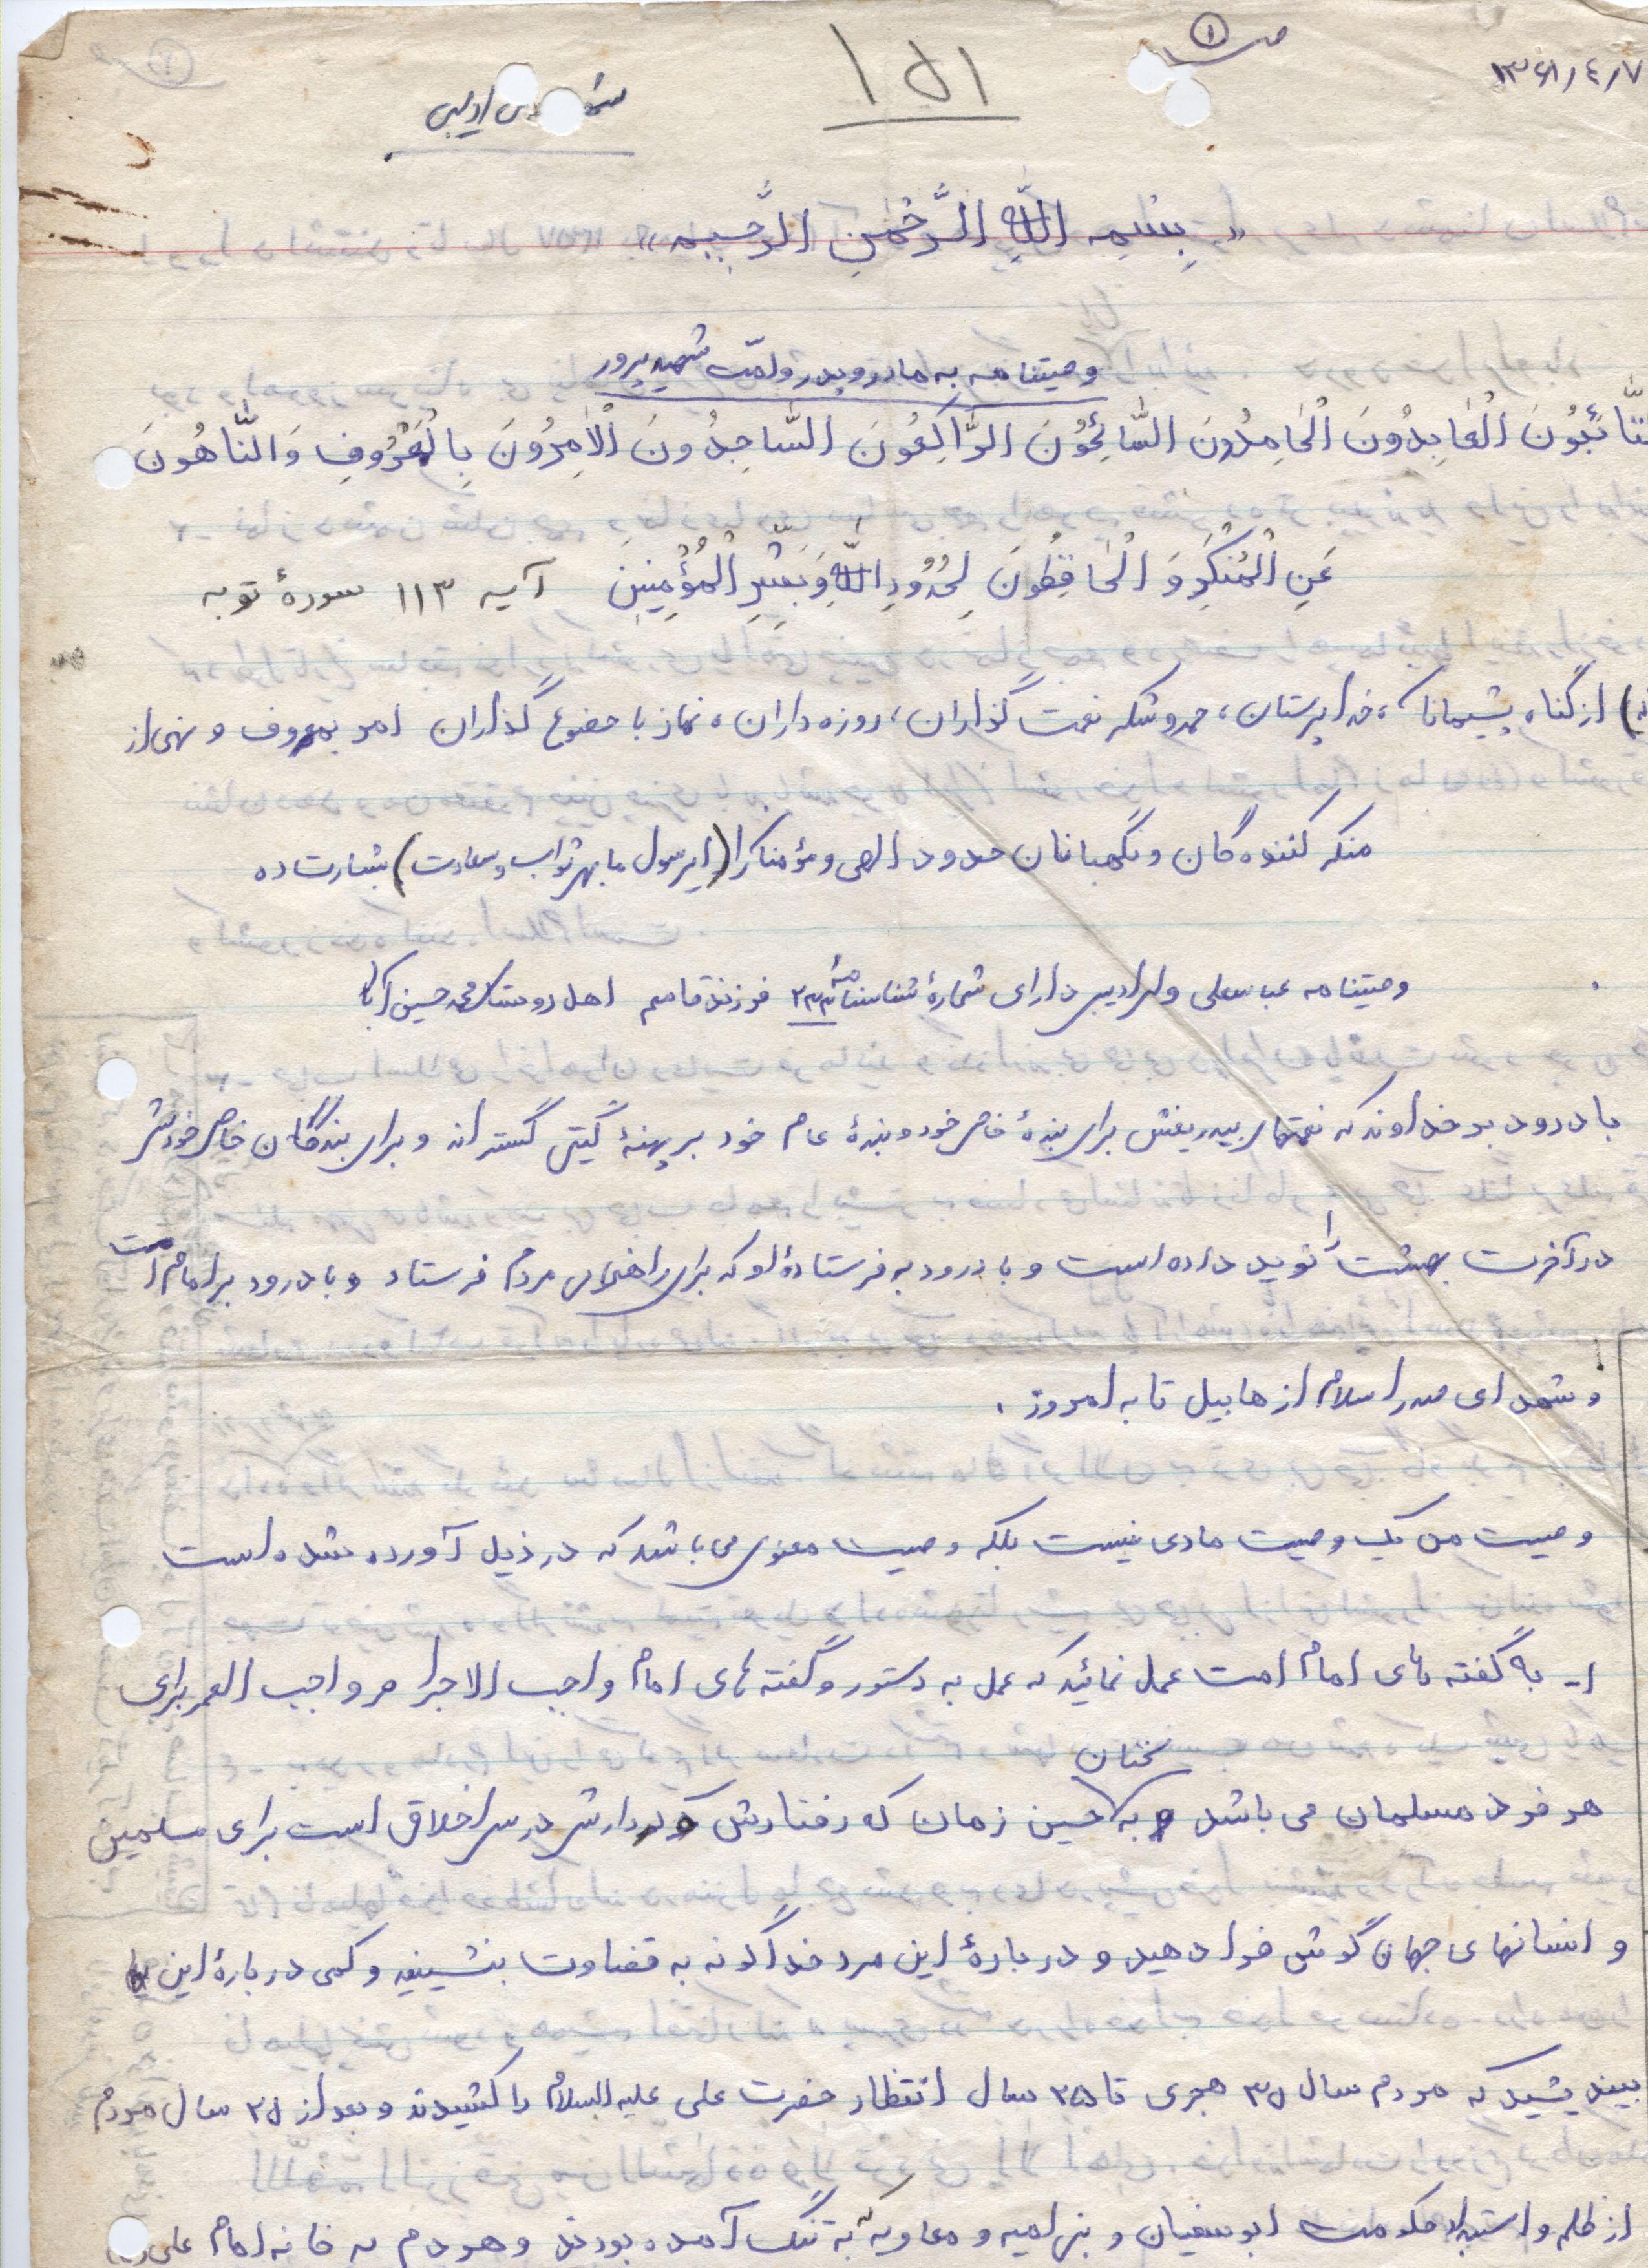 ۱۳۶۱/٤/۷
ص ①
۱۵۱
ادیبی
«بِسْمِ اللّهِ الرَّحْمٰنِ الرَّحیمِ»
وصیتنامه به مادر و پدر و امّت شهیدپرور
التَّائِبُونَ الْعَابِدُونَ الْحَامِدُونَ السَّائِحُونَ الرَّاكِعُونَ السَّاجِدُونَ الْآمِرُونَ بِالْمَعْرُوفِ وَالنَّاهُونَ
عَنِ الْمُنْكَرِ وَ الْحَافِظُونَ لِحُدُودِ اللَّهِ وَ بَشِّرِ الْمُؤْمِنِينَ آیه ۱۱۳ سورهٔ توبه
از گناه پشیمانان، خداپرستان، حمد و شکر نعمت گذاران، روزه داران، نماز با خضوع گذاران امر بمعروف و نهی از
منکر کننده گان و نگهبانان حدود الهی و مؤمنان را (ای رسول ما بهر ثواب و سعادت) بشارت ده
وصیتنامه عباسعلی ولی ادیبی دارای شمارهٔ شناسنامهٔ فرزند قاسم اهل روستای محمدحسین آباد
با درود بر خداوند که نعمتهای بیدریغش برای بندهٔ خاص خود و بندهٔ عام خود بر پهنهٔ گیتی گسترانده و برای بندگان خاص خودش
در آخرت بهشت را نوید داده است و با درود به فرستادهٔ او که برای راهنمای مردم فرستاد و با درود بر امام امت
و شهدای صدر اسلام از هابیل تا به امروز .
وصیت من یک وصیت مادی نیست بلکه وصیت معنوی می باشد که در ذیل آورده شده است
۱ـ به گفته های امام امت عمل نمائید که عمل به دستور و گفته های امام واجب الاجرا و واجب العمر برای
هر فرد مسلمان می باشد به سخنان حسین زمان که رفتارش و کردارش درس اخلاق است برای مسلمین
و انسانهای جهان گوش فرا دهید و دربارهٔ این مرد خداگونه به قضاوت بنشینید و کمی دربارهٔ این
بیندیشید که مردم سال ۳۵ هجری تا ۲۵ سال انتظار حضرت علی علیه السلام را کشیدند و بعد از ۲۵ سال مردم
از ظلم و استبداد حکومت ابوسفیان و بنی امیه و معاویه به تنگ آمده بودند و مردم به خانه امام علی